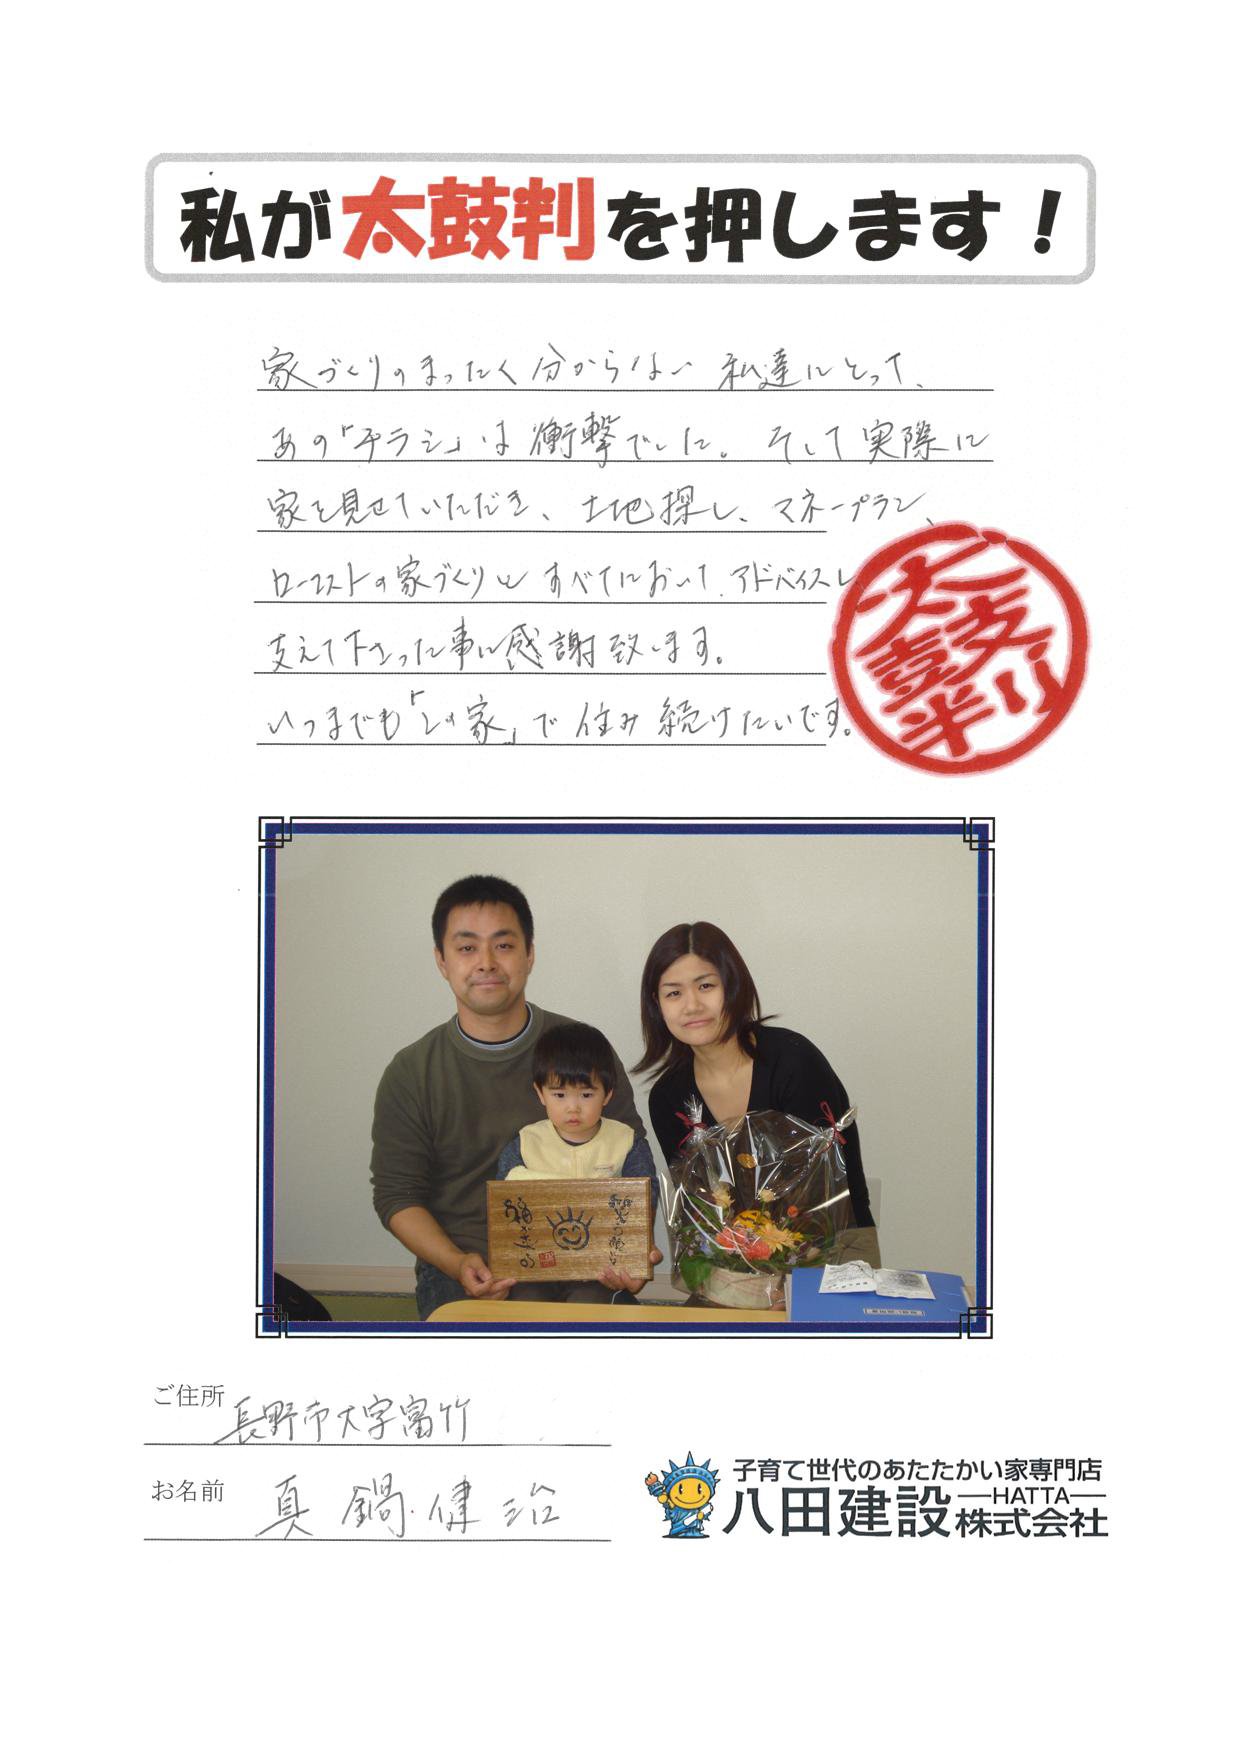 私が太鼓判を押します！
家づくりのまったく分からない私達にとって、
あの「チラシ」は衝撃でした。そして実際に
家を見せていただき、土地探し、マネープラン、
ローコストの家づくりとすべてにおいて、アドバイスし、
支えて下さった事に感謝致します。
いつまでも「この家」で住み続けたいです。
太鼓判
ご住所 長野市大字富竹
お名前 真鍋健治
子育て世代のあたたかい家専門店
八田建設 HATTA 株式会社